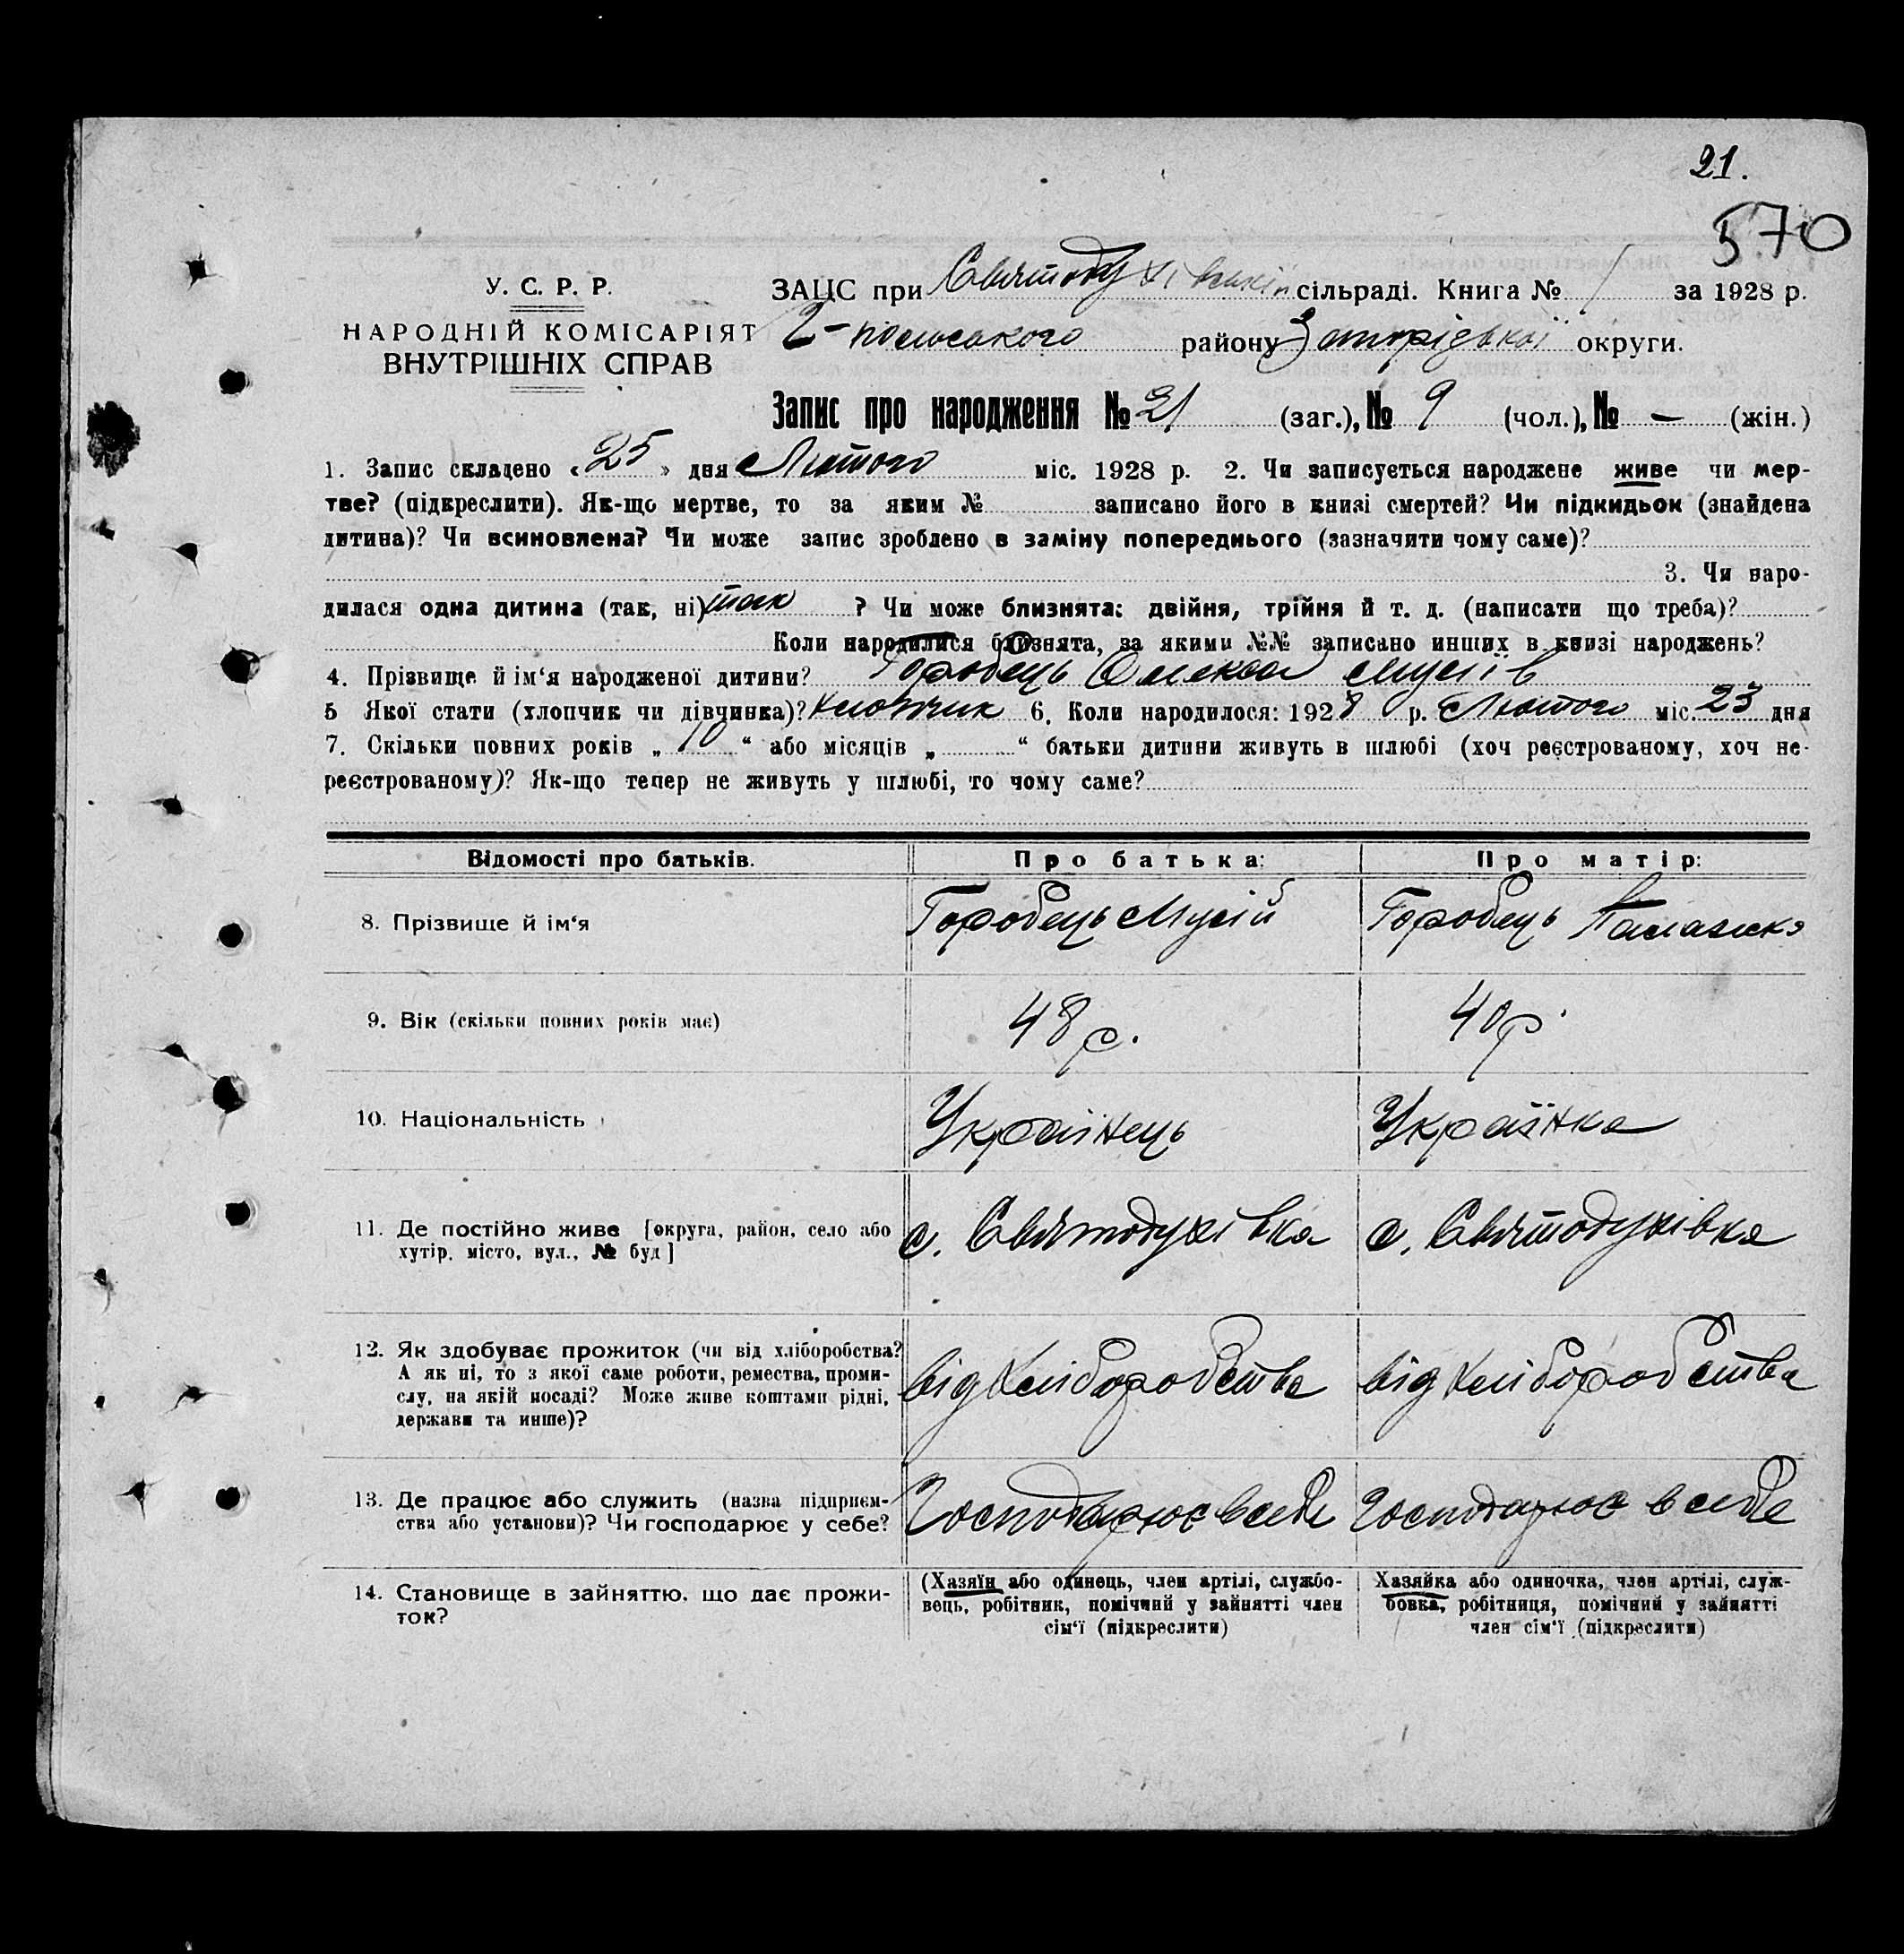 21.
570
У. С. Р. Р.
НАРОДНІЙ КОМІСАРІЯТ
ВНУТРІШНІХ СПРАВ
ЗАЦС при Святодухівській сільраді. Книга № 1 за 1928 р.
2-польського району Запорізької округи.
Запис про народження № 21 (заг.), № 9 (чол.), № — (жін.)
1. Запис складено « 25 » дня Лютого міс. 1928 р. 2. Чи записується народжене живе чи мер-
тве? (підкреслити). Як-що мертве, то за яким № записано його в книзі смертей? Чи підкидьок (знайдена
дитина)? Чи всиновлена? Чи може запис зроблено в заміну попереднього (зазначити чому саме)?
3. Чи наро-
дилася одна дитина (так, ні) так ? Чи може близнята: двійня, трійня й т. д. (написати що треба)?
Коли народилися близнята, за якими №№ записано инших в книзі народжень?
4. Прізвище й ім‘я народженої дитини? Горобець Олекса Мусіїв
5 Якої стати (хлопчик чи дівчинка)? Хлопчик 6. Коли народилося: 1928 р. Лютого міс. 23 дня
7. Скільки повних років „ 10 “ або місяців „ “ батьки дитини живуть в шлюбі (хоч реєстрованому, хоч не-
реєстрованому)? Як-що тепер не живуть у шлюбі, то чому саме?
Відомості про батьків. Про батька: Про матір:
8. Прізвище й ім‘я Горобець Мусій Горобець Палажка
9. Вік (скільки повних років має) 48 р. 40 р.
10. Національність Українець Українка
11. Де постійно живе [округа, район, село або
хутір, місто, вул., № буд] с. Святодухівка с. Святодухівка
12. Як здобуває прожиток (чи від хліборобства?
А як ні, то з якої саме роботи, ремества, проми-
слу, на якій посаді? Може живе коштами рідні,
держави та инше)? від Хліборобства від Хліборобства
13. Де працює або служить (назва підприєм-
ства або установи)? Чи господарює у себе? Господарює в себе Господарює в себе
14. Становище в зайняттю, що дає прожи-
ток?
(Хазяїн або одинець, член артілі, службо-
вець, робітник, помічний у зайнятті член
сім‘ї (підкреслити)
Хазяйка або одиночка, член артілі, служ-
бовка, робітниця, помічний у зайнятті
член сім‘ї (підкреслити)